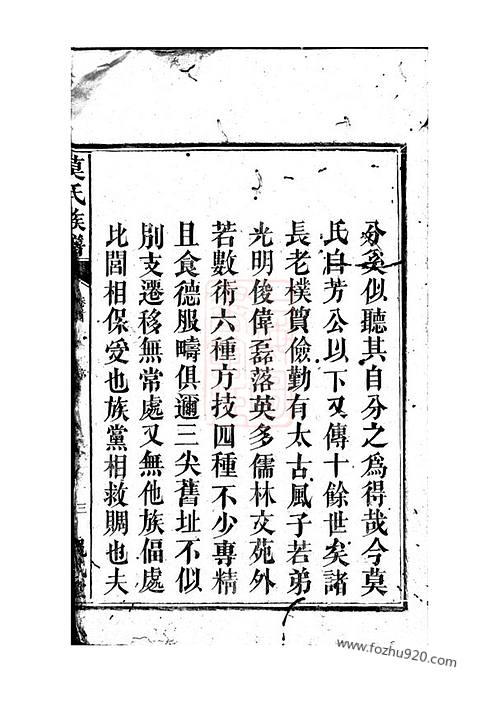 分奚似聽其自分之為得哉今莫
氏自芳公以下又傳十餘世矣諸
長老樸質儉勤有太古風子若弟
光明俊偉磊落英多儒林文苑外
若數術六種方技四種不少專精
且食德服疇俱邇三尖舊址不似
別支遷移無常處又無他族偪處
比閭相保受也族黨相救賙也夫
莫氏族譜
三
www.fozhu920.com